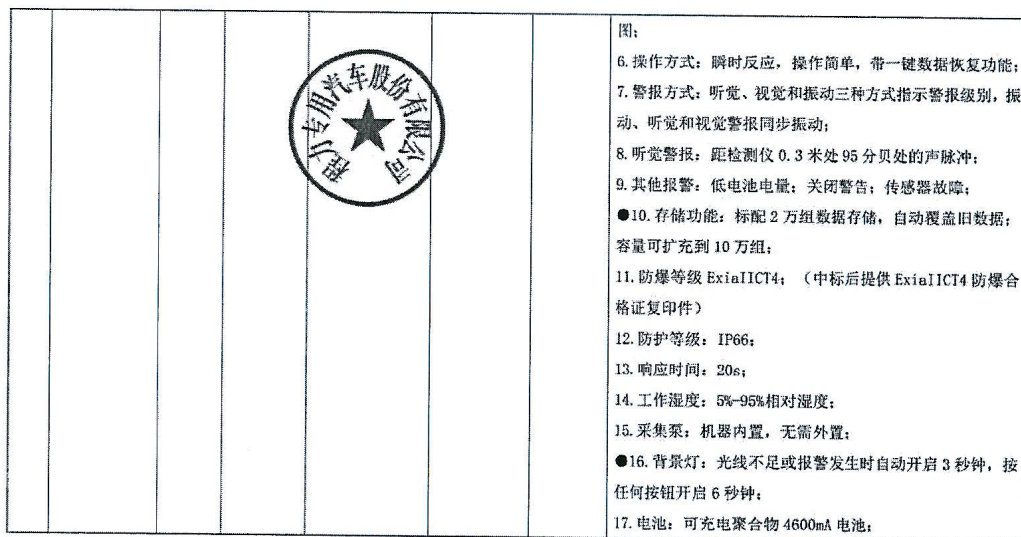 程力专用汽车股份有限公司
图;
6.操作方式：瞬时反应，操作简单，带一键数据恢复功能；
7.警报方式：听觉、视觉和振动三种方式指示警报级别，振
动、听觉和视觉警报同步振动；
8.听觉警报：距检测仪 0.3 米处 95 分贝处的声脉冲；
9.其他报警：低电池电量；关闭警告；传感器故障；
●10.存储功能：标配 2 万组数据存储，自动覆盖旧数据；
容量可扩充到 10 万组；
11.防爆等级 ExiaIICT4；（中标后提供 ExiaIICT4 防爆合
格证复印件）
12.防护等级：IP66；
13.响应时间：20s；
14.工作湿度：5%-95%相对湿度；
15.采集泵：机器内置，无需外置；
●16.背景灯：光线不足或报警发生时自动开启 3 秒钟，按
任何按钮开启 6 秒钟；
17.电池：可充电聚合物 4600mA 电池；